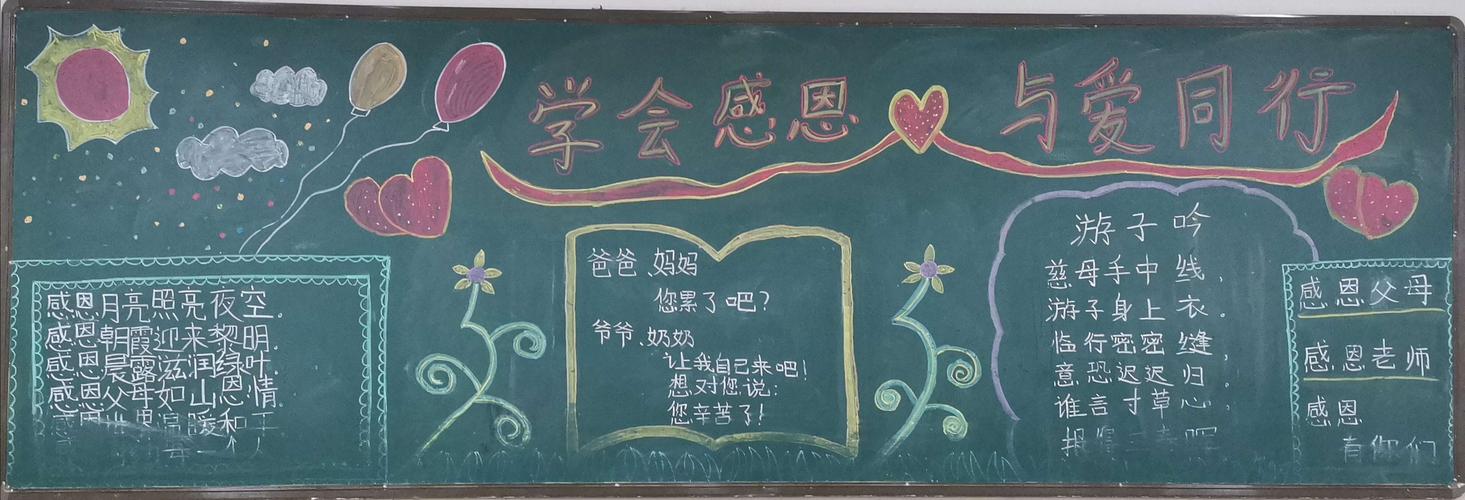 学会感恩 与爱同行
感恩月亮照亮夜空。
感恩朝霞迎来黎明。
感恩晨露滋润绿叶。
感恩父母如山恩情。
爸爸、妈妈
您累了吧？
爷爷、奶奶
让我自己来吧！
想对您说：
您辛苦了！
游子吟
慈母手中线，
游子身上衣。
临行密密缝，
意恐迟迟归。
谁言寸草心，
感恩父母
感恩老师
感恩
有你们